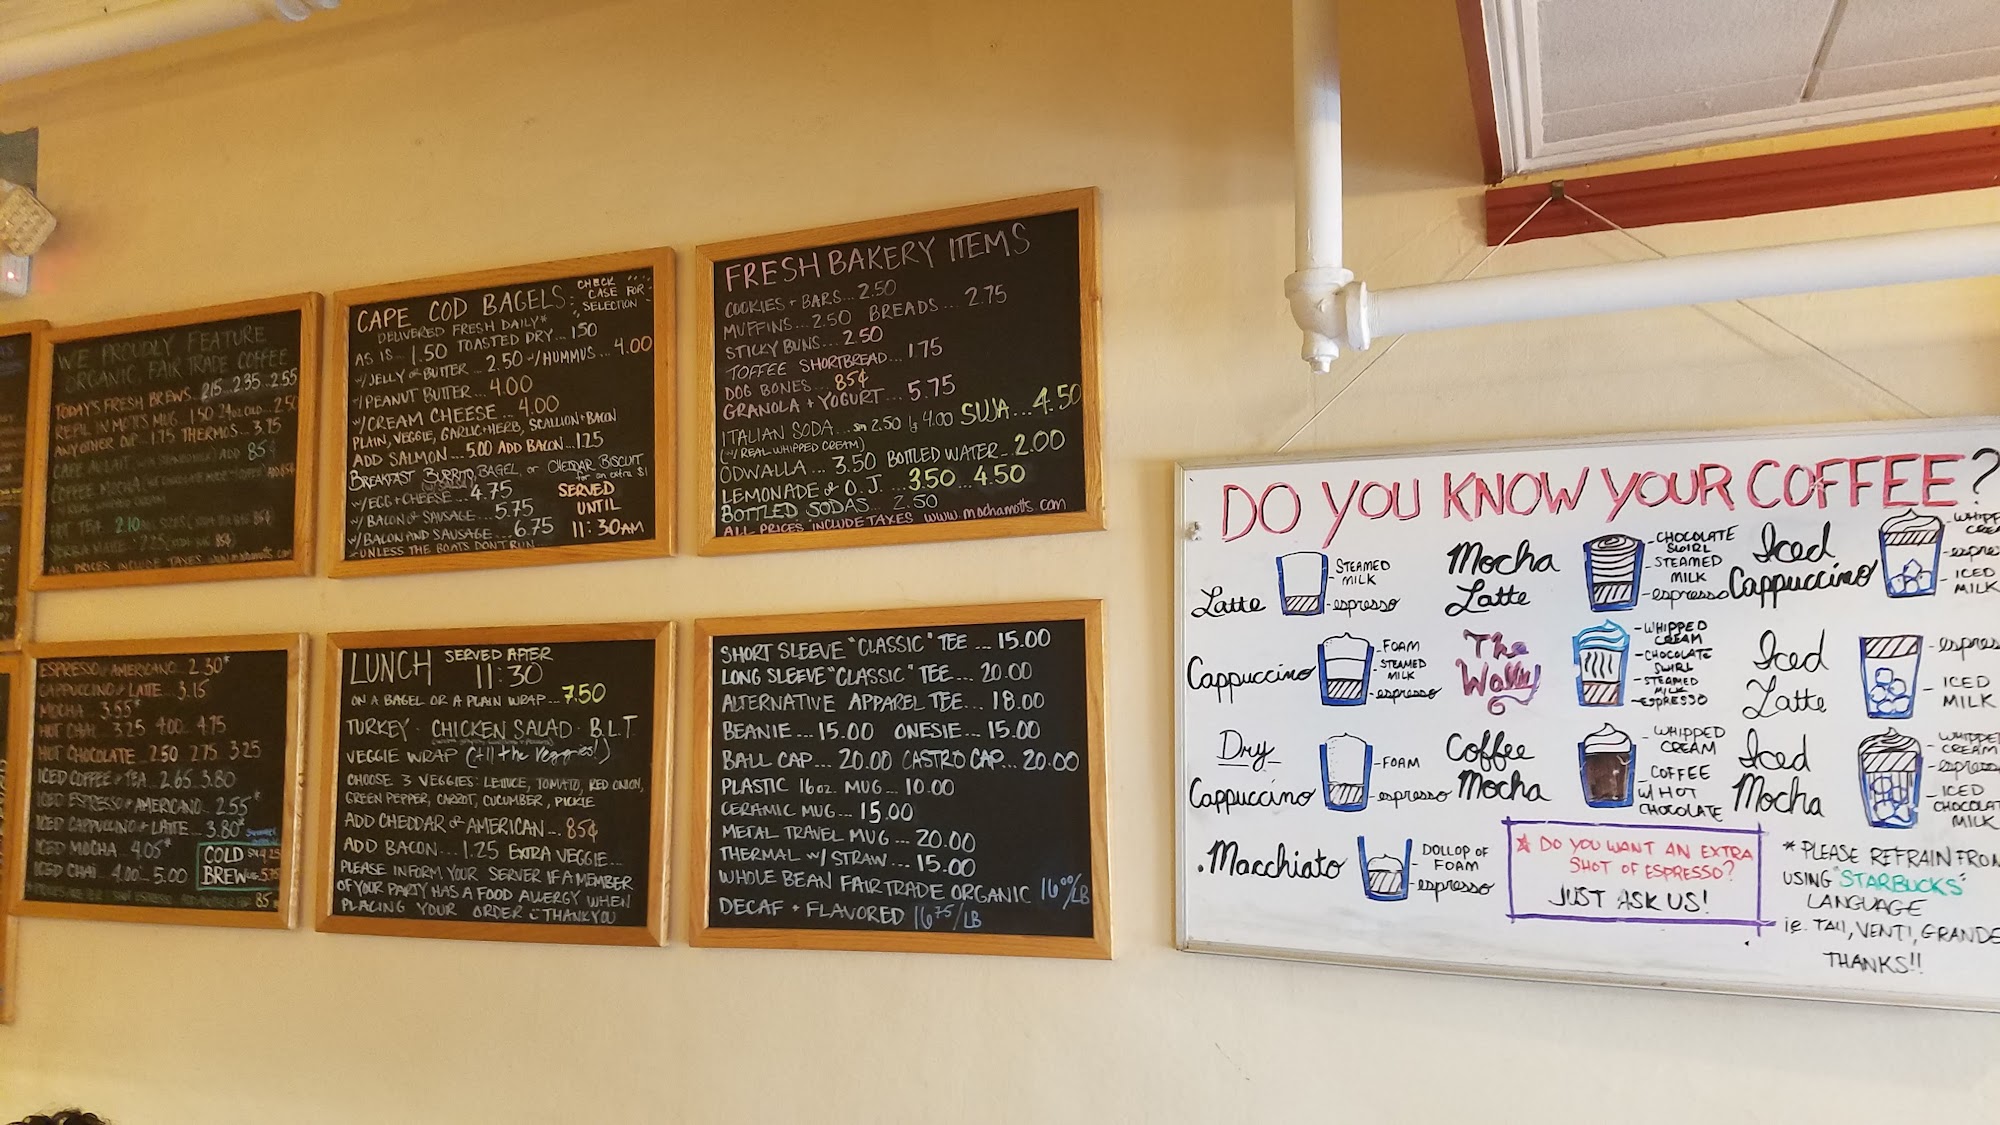 WE PROUDLY FEATURE
ORGANIC, FAIR TRADE COFFEE
TODAY'S FRESH BREWS 2.15..2.35..2.55
REFILL IN MOTT'S MUG 1.50 24oz COLD... 2.50
ANY OTHER CUP... 1.75 THERMOS... 3.75
CAFE AU LAIT ADD 85¢
COFFEE MOCHA ADD 85¢
HOT TEA 2.10
YERBA MATE
ALL PRICES INCLUDE TAXES www.mochamotts.com
CAPE COD BAGELS
CHECK CASE FOR SELECTION
DELIVERED FRESH DAILY*
AS IS... 1.50 TOASTED DRY... 1.50
W/ JELLY OR BUTTER ... 2.50 W/ HUMMUS... 4.00
W/ PEANUT BUTTER... 4.00
W/ CREAM CHEESE... 4.00
PLAIN, VEGGIE, GARLIC+HERB, SCALLION+BACON
ADD SALMON... 5.00 ADD BACON... 1.25
BREAKFAST BURRITO, BAGEL, or CHEDDAR BISCUIT
for an extra $1
W/ EGG + CHEESE... 4.75
W/ BACON OR SAUSAGE... 5.75
W/ BACON AND SAUSAGE... 6.75
SERVED UNTIL 11:30AM
*UNLESS THE BOATS DON'T RUN
FRESH BAKERY ITEMS
COOKIES + BARS... 2.50
MUFFINS... 2.50 BREADS... 2.75
STICKY BUNS... 2.50
TOFFEE SHORTBREAD... 1.75
DOG BONES... 85¢
GRANOLA + YOGURT... 5.75
ITALIAN SODA... sm 2.50 lg 4.00 SUJA... 4.50
(W/ REAL WHIPPED CREAM)
ODWALLA... 3.50 BOTTLED WATER... 2.00
LEMONADE & O.J. ...3.50 ...4.50
BOTTLED SODAS... 2.50
ALL PRICES INCLUDE TAXES www.mochamotts.com
ESPRESSO OR AMERICANO... 2.30*
CAPPUCCINO OR LATTE... 3.15*
MOCHA... 3.55*
HOT CHAI... 3.25 4.00.. 4.75
HOT CHOCOLATE... 2.50 2.75 3.25
ICED COFFEE OR TEA... 2.65 3.80
ICED ESPRESSO OR AMERICANO... 2.55*
ICED CAPPUCCINO OR LATTE... 3.80*
ICED MOCHA... 4.05*
ICED CHAI... 4.00... 5.00
COLD BREW
LUNCH SERVED AFTER 11:30
ON A BAGEL OR A PLAIN WRAP... 7.50
TURKEY · CHICKEN SALAD · B.L.T
VEGGIE WRAP (All the Veggies!)
CHOOSE 3 VEGGIES: LETTUCE, TOMATO, RED ONION,
GREEN PEPPER, CARROT, CUCUMBER, PICKLE
ADD CHEDDAR OR AMERICAN... 85¢
ADD BACON... 1.25 EXTRA VEGGIE...
PLEASE INFORM YOUR SERVER IF A MEMBER
OF YOUR PARTY HAS A FOOD ALLERGY WHEN
PLACING YOUR ORDER THANK YOU
SHORT SLEEVE "CLASSIC" TEE ... 15.00
LONG SLEEVE "CLASSIC" TEE... 20.00
ALTERNATIVE APPAREL TEE... 18.00
BEANIE... 15.00 ONESIE... 15.00
BALL CAP... 20.00 CASTRO CAP... 20.00
PLASTIC 16oz. MUG... 10.00
CERAMIC MUG... 15.00
METAL TRAVEL MUG... 20.00
THERMAL W/ STRAW... 15.00
WHOLE BEAN FAIR TRADE ORGANIC 16⁰⁰/LB
DECAF + FLAVORED 16⁷⁵/LB
DO YOU KNOW YOUR COFFEE?
Latte
- STEAMED MILK
- espresso
Mocha Latte
- CHOCOLATE SWIRL
- STEAMED MILK
- espresso
Iced Cappuccino
- WHIPPED
- ICED MILK
Cappuccino
- FOAM
- STEAMED MILK
- espresso
The Wally
- WHIPPED CREAM
- CHOCOLATE SWIRL
- STEAMED MILK
- ESPRESSO
Iced Latte
- ICED MILK
Dry Cappuccino
- FOAM
- espresso
Coffee Mocha
- WHIPPED CREAM
- COFFEE W/ HOT CHOCOLATE
Iced Mocha
- CREAM
- espresso
- ICED
MILK
. Macchiato
DOLLOP OF FOAM
espresso
* DO YOU WANT AN EXTRA
SHOT OF ESPRESSO?
JUST ASK US!
* PLEASE REFRAIN FROM
USING "STARBUCKS"
LANGUAGE
ie. TALL, VENTI, GRANDE
THANKS!!